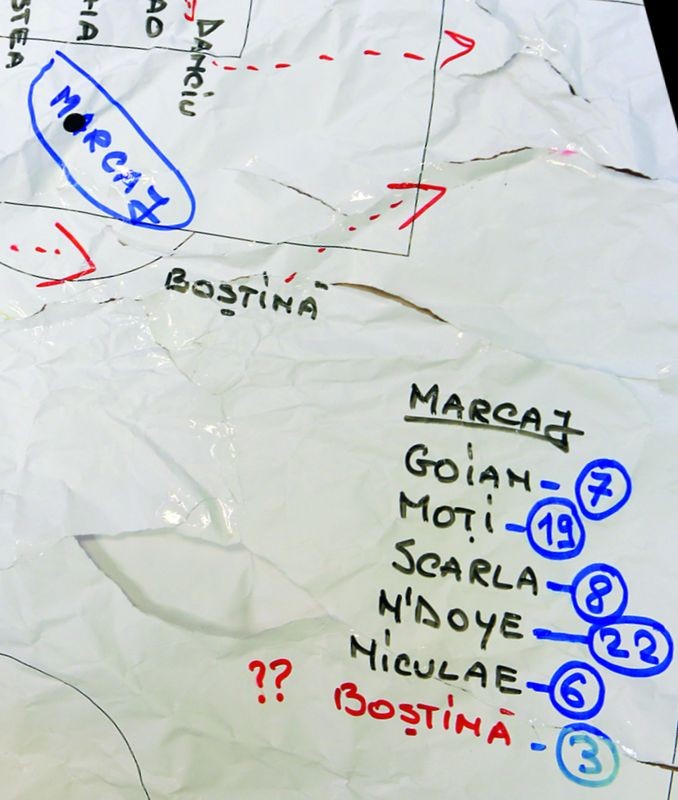 STEA
HIA
AO
DANCiU
MARCAJ
BOȘTiNĂ
MARCAJ
GOiAN - 7
MOȚi - 19
SCARLA - 8
N'DOYE - 22
NiCULAE - 6
?? BOȘTiNĂ - 3